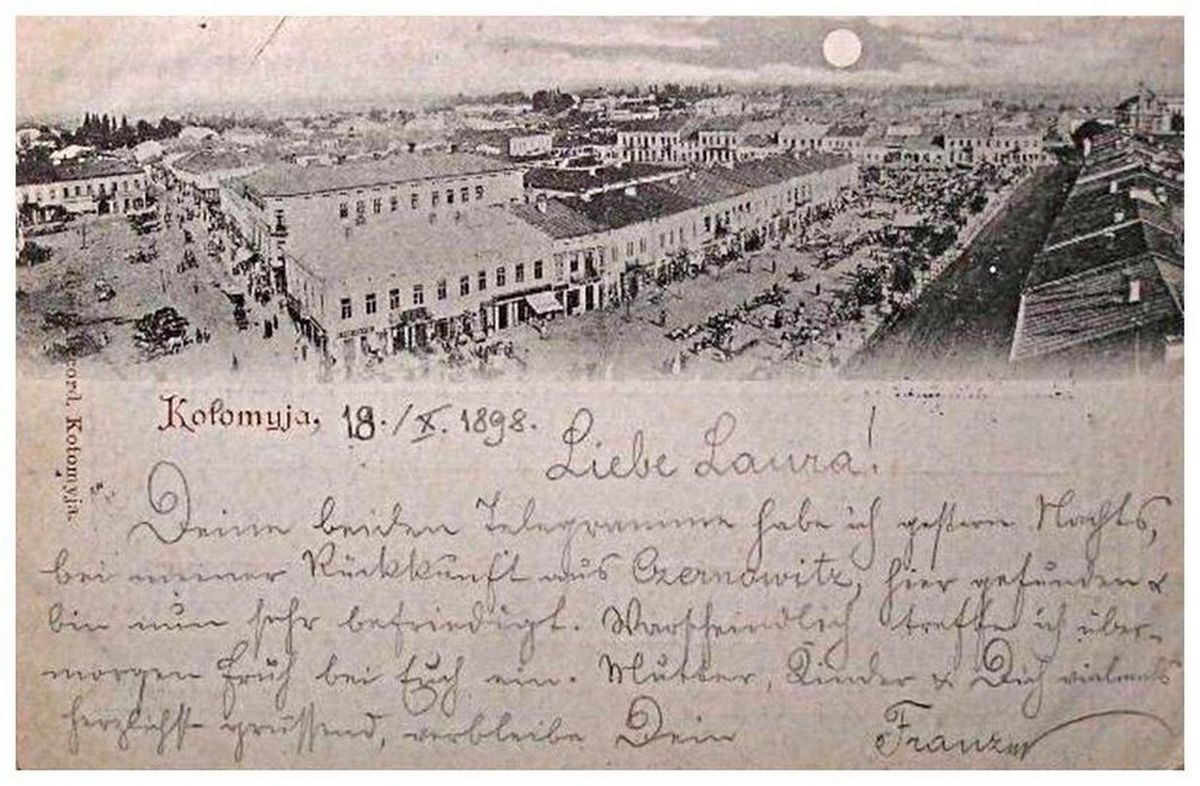 Kołomyja, 18./X. 1898.
Liebe Laura!
Deine beiden Telegramme habe ich gestern Nachts,
bei meiner Rückkunft aus Czernowitz, hier gefunden &
bin nun sehr befriedigt. Warscheindlich treffe ich über-
morgen früh bei Euch ein. Mutter, Kinder & Dich vielmals
herzlichst grüssend, verbleibe Dein Franz
ord, Kołomyja.